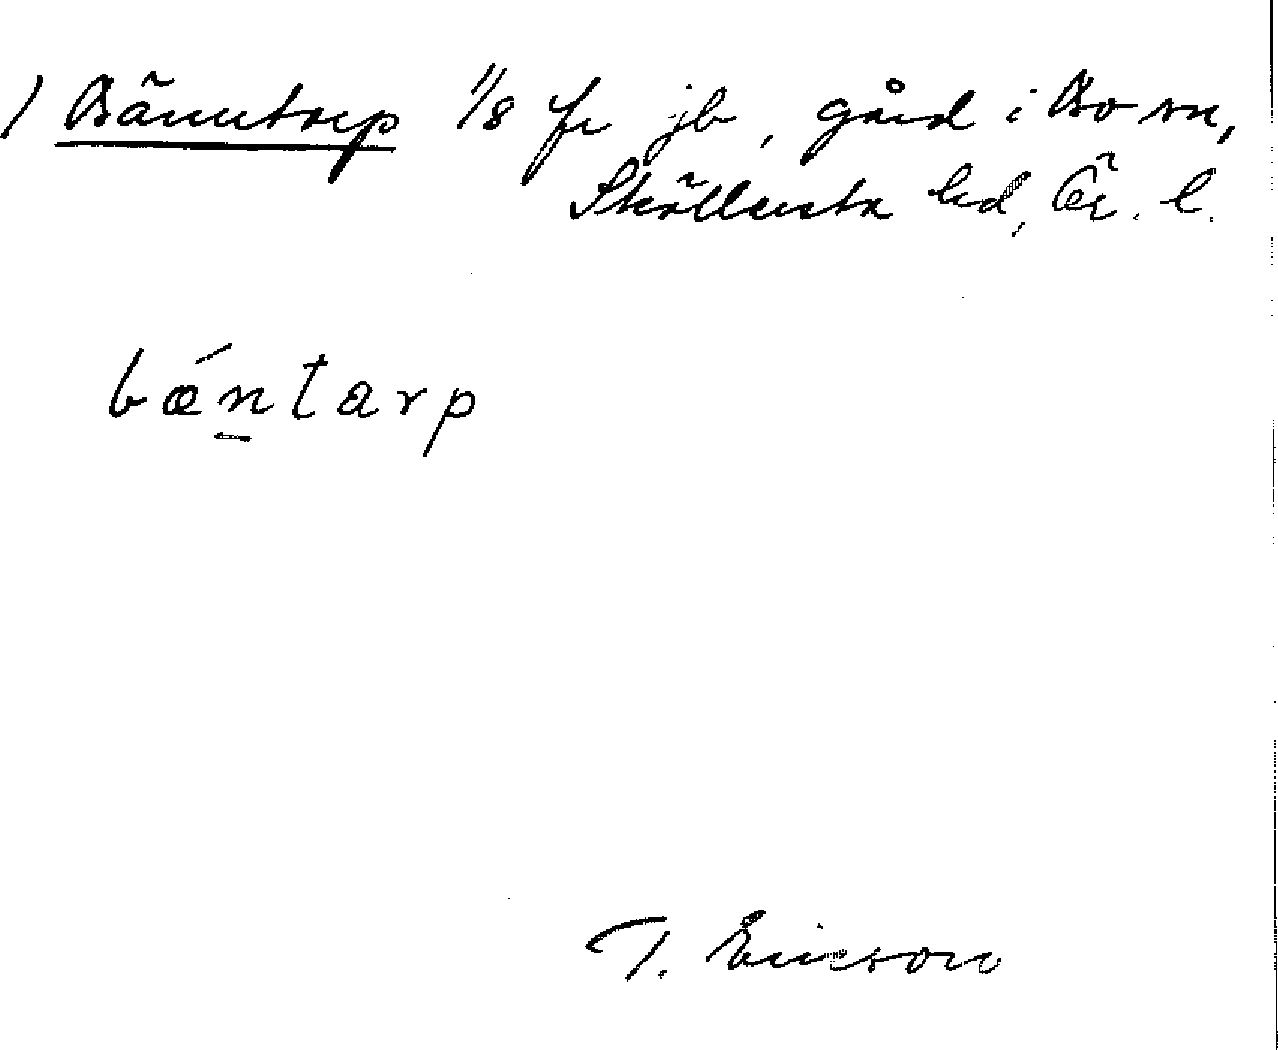 ) Bänntorp 1/8 fr jb, gård i Bo sn,
Sköllersta hd, Ör. l.
bǽn̲tarp
T. Ericson